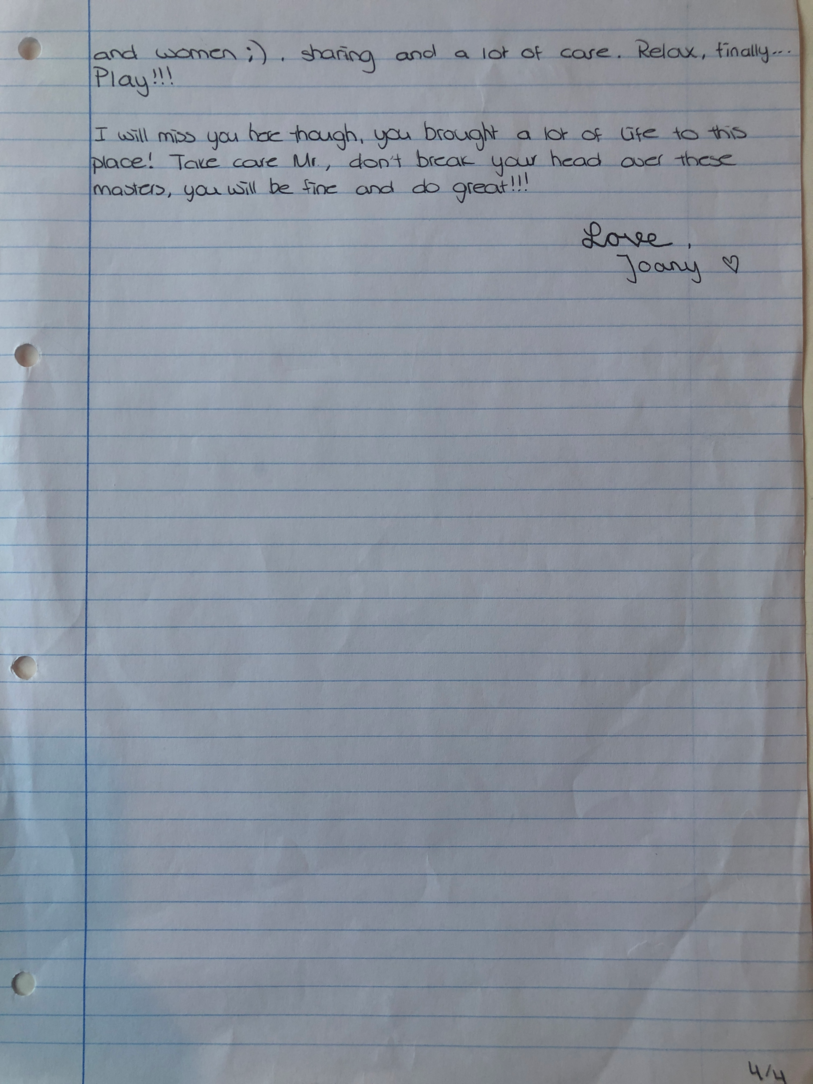 and women ;). sharing and a lot of care. Relax, finally...
Play!!!
I will miss you here though, you brought a lot of life to this
place! Take care Mr, don't break your head over these
masters, you will be fine and do great!!!
Love,
Joany ♡
4/4